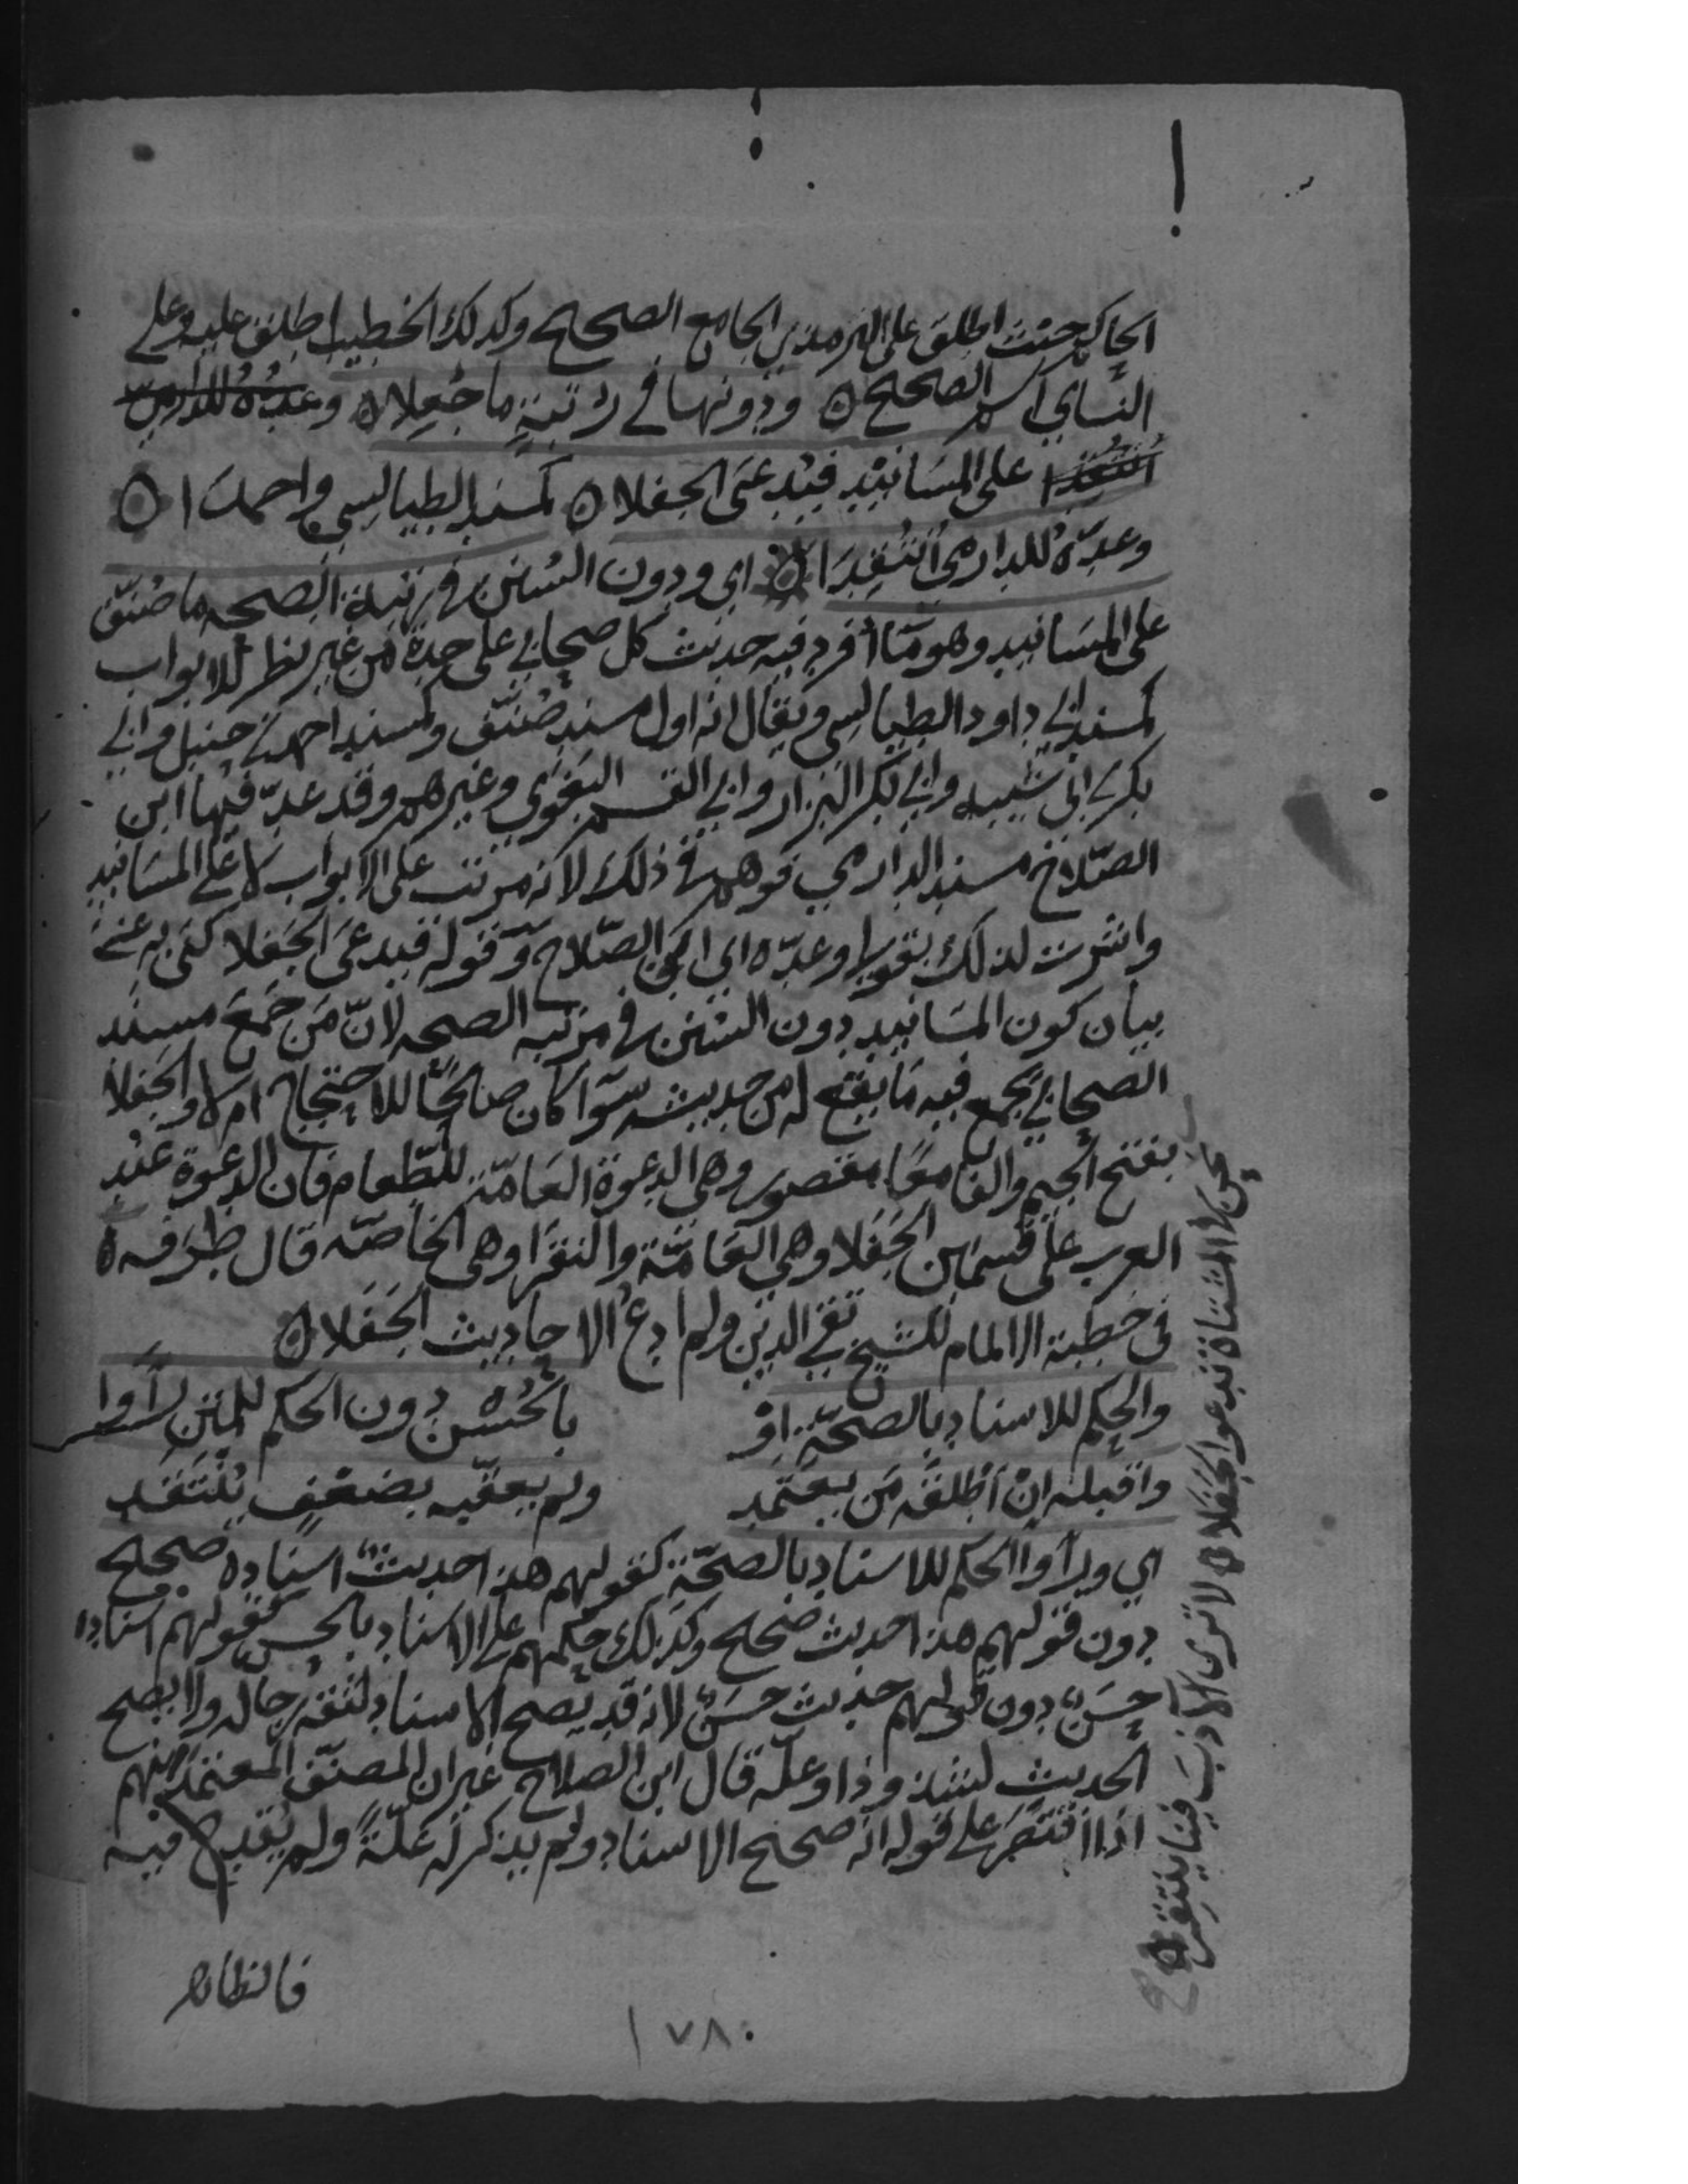 الحاكم حيث اطلق على الترمذي الجامع الصحيح وكذلك الخطيب اطلق عليه وعلى
النساي اسم الصحيح ه ودونها في رتبةٍ ما جُعِلا ه وعدّه للدارمي
انتقدا على المسَانِيْد فيُدعَى الجفلا ه كمسند الطيالسي واحمدَا ه
وعدّهُ للدارمي انتُقِدَا ه اي ودون السُنن في رتبة الصحه ما صُنّف
على المسَانيد وهو ما أفرد فيه حديث كل صحابي على حدة من غير نظر للابواب
كمسند ابي داود الطيالسي ويقال انه اول مسند صُنّف وكمسند احمد بن حنبل وابي
بكر بن ابي شيبه وابي بكر البزار وابي القسم البَغَوي وغيرهم وقد عدّ فيها ابن
الصّلاح مسند الدارمي فوهم في ذلك لانه مرتب على الابواب لا على المسَانيد
واشرت لذلك بقولي وعدّه اي ابن الصّلاح وقوله فيدعَى الجَفلا كنَى به عن
بيان كون المسَانيد دون السُنن في مرتبه الصحه لانّ مَن جَمَعَ مسند
الصحابي يجمع فيه مَا يقع له من حديثه سَوا كان صَالحًا للاحتجاج ام لا والجَفلا
بفتح الجيم والفا معًا مقصور وهي الدعوة العَامّة للطّعام فان الدعوة عند
العرب على قسمَين الجَفَلا وهي العَامّة والنقَرَا وهي الخاصّه قال طرَفه ه
نحن في المشتاة ندعوا الجَفَلا ه لا ترى الآدِبَ فينا ينتقر ه
في خطبة الالمام للشيخ تقي الدين ولم ادعُ الاحاديث الجَفَلا ه
والحكم للاسناد بالصحّةِ اوْ بالحُسْن دون الحكم للمتن رَأَوا
واقبله انْ أطْلقَه مَن يعتمد ولم يعقّبه بضعْفٍ يُنْتَقَد
اي ورأَوا الحكم للاسناد بالصحّة كقولهم هذا حديث اسناده صحيح
دون قولهم هذا حديث صحيح وكذلك حكمهم على الاسناد بالحسن كقولهم اسناده
حسَن دون قولهم حديث حسَن لانه قد يصح الاسناد لثقه رجاله ولا يصح
الحديث لشذوذ او علّه قال ابن الصلاح غير ان المصنّف المعتمد منهم
اذا اقتصَر على قوله انه صحيح الاسناد ولم يذكر له علّةً ولم يقدح فيه
فالظاهر
١٧٨٠